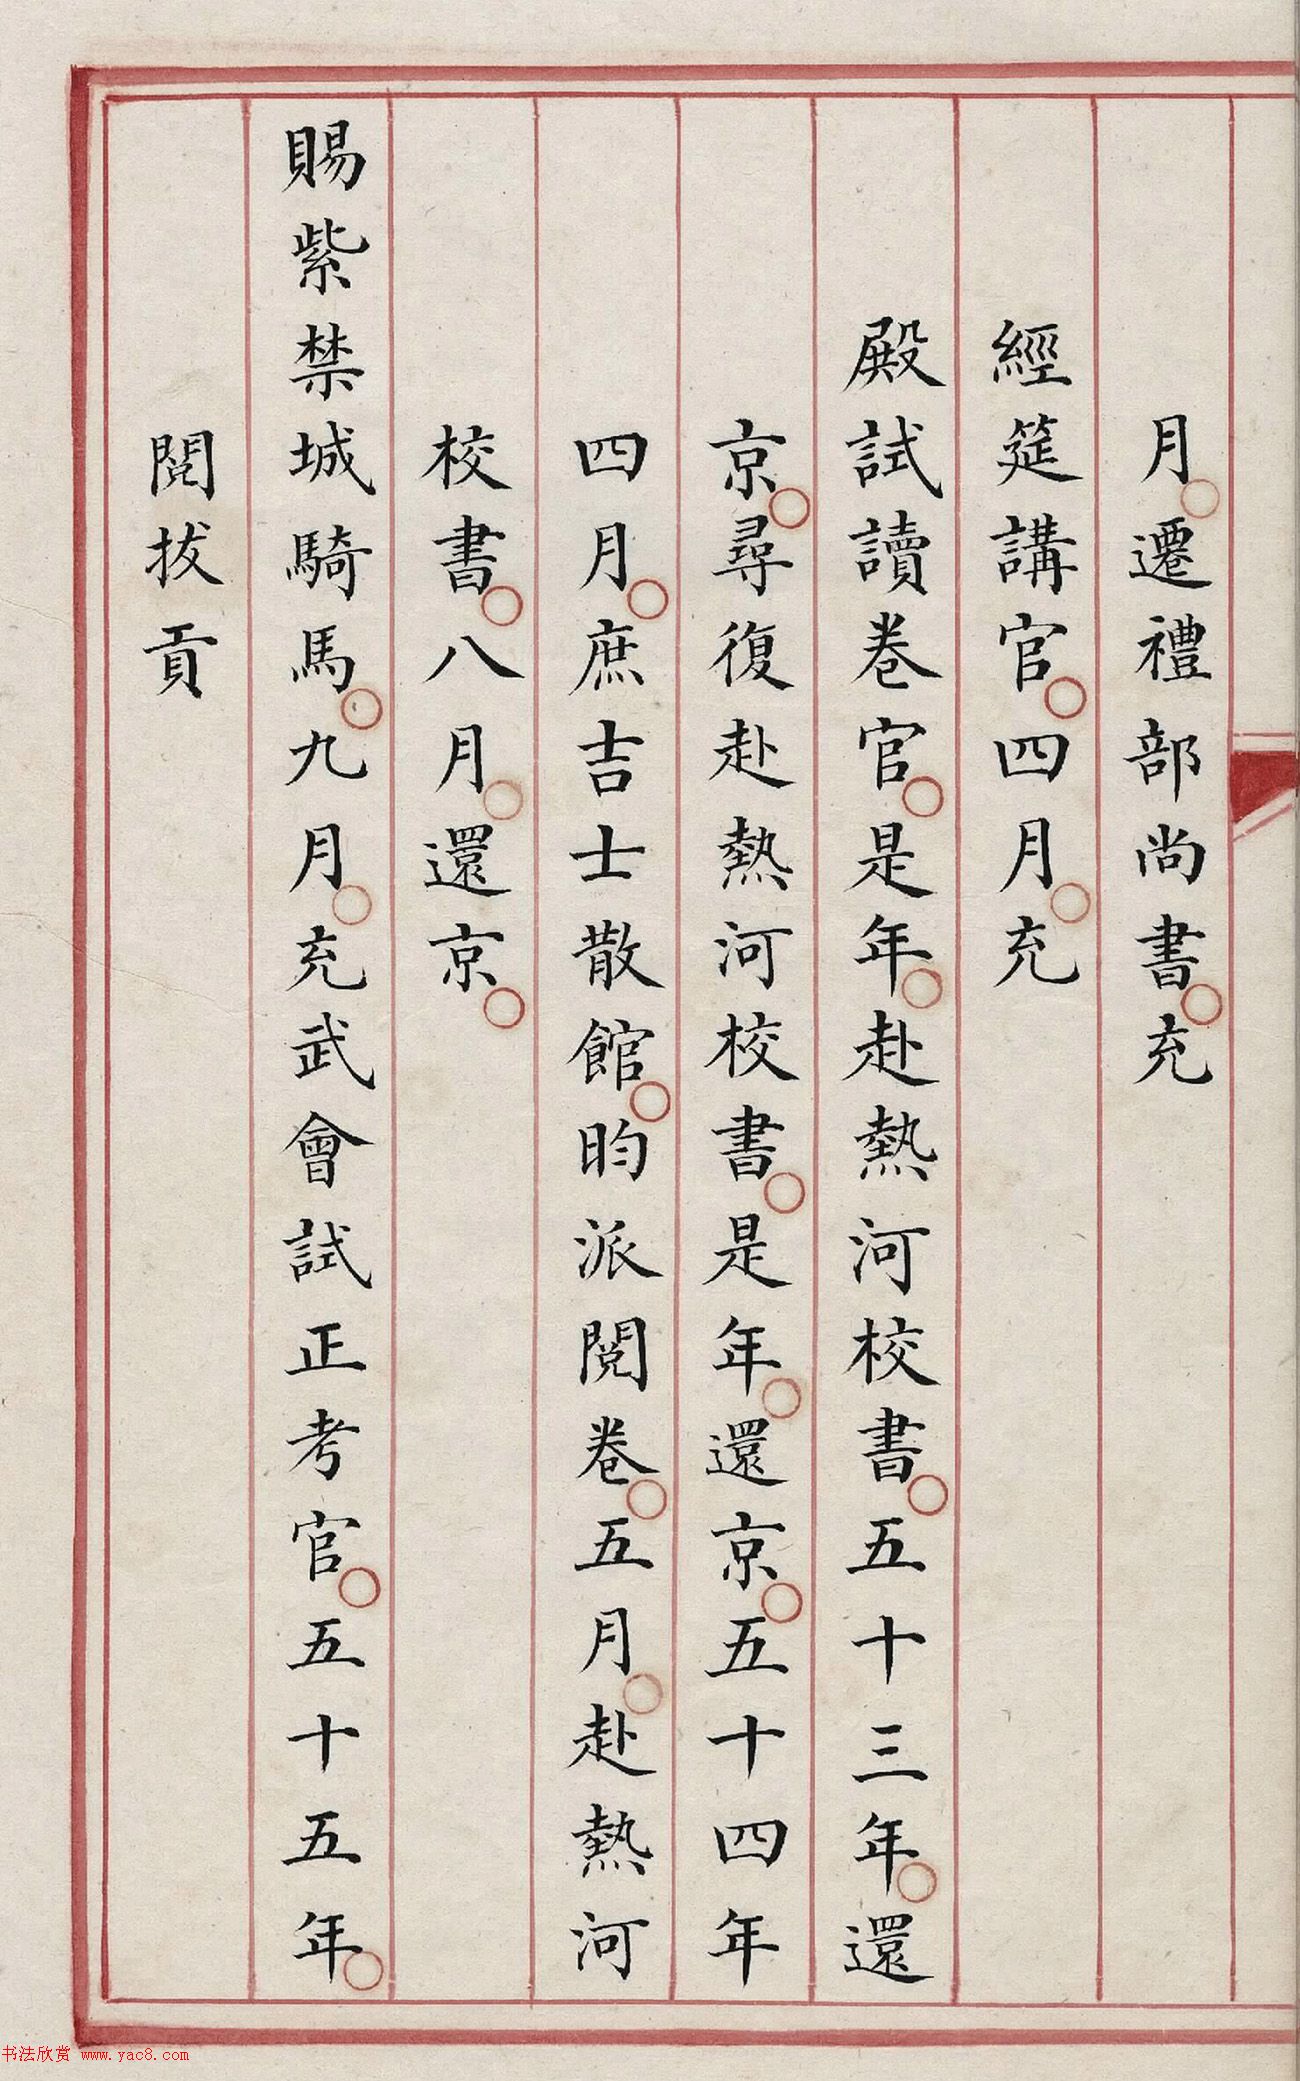 月遷禮部尚書充
經筵講官四月充
殿試讀卷官是年赴熱河校書五十三年還
京尋復赴熱河校書是年還京五十四年
四月庶吉士散館昀派閱卷五月赴熱河
校書八月還京
賜紫禁城騎馬九月充武會試正考官五十五年
閱拔貢
书法欣赏 www.yac8.com